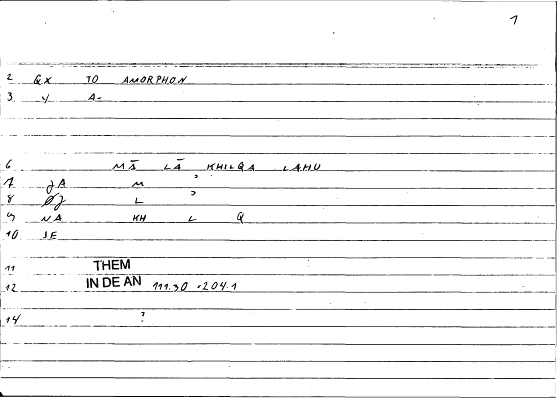 1
2 QX TO AMORPHON
3 Y A-
6 MĀ LĀ KHILQA LAHU
7 JA M ʾ
8 L ʾ
9 NA KH L Q
10 SE
11 THEM
12 IN DE AN 111.30 -204.1
14 ?